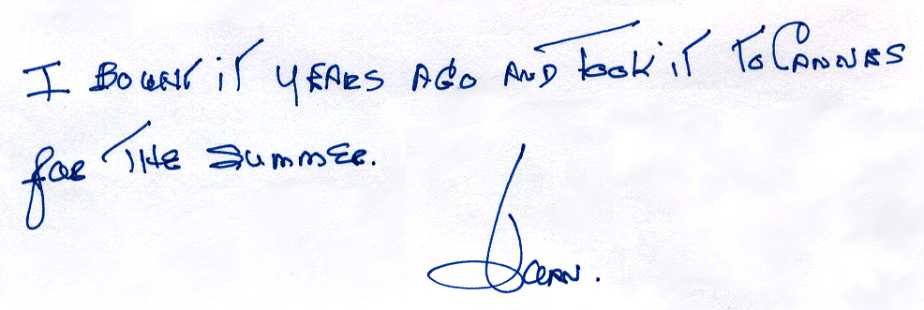 I BOUGHT iT YEARS AGO AND took iT To CANNES
foR THE SUMMER.